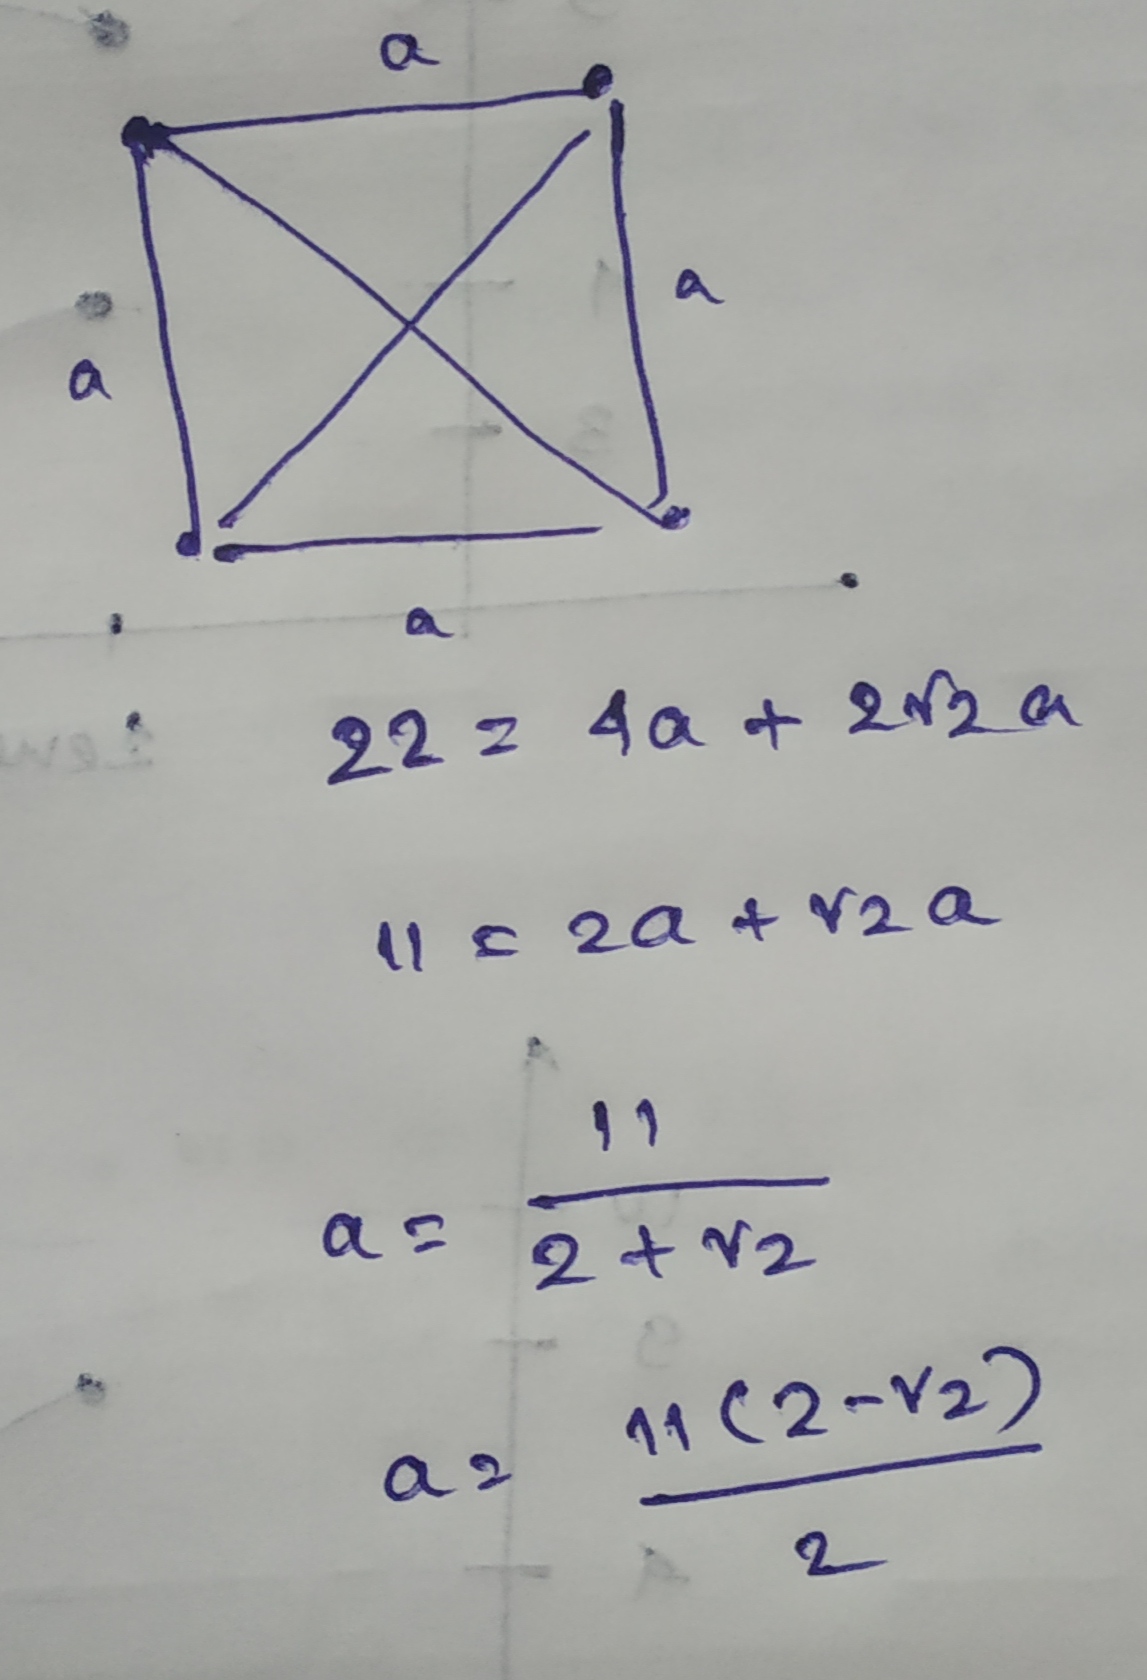 a
a
a
a
22 = 4a + 2√2 a
11 = 2a + √2 a
11
a = 2 + √2
11 (2 - √2)
a =
2